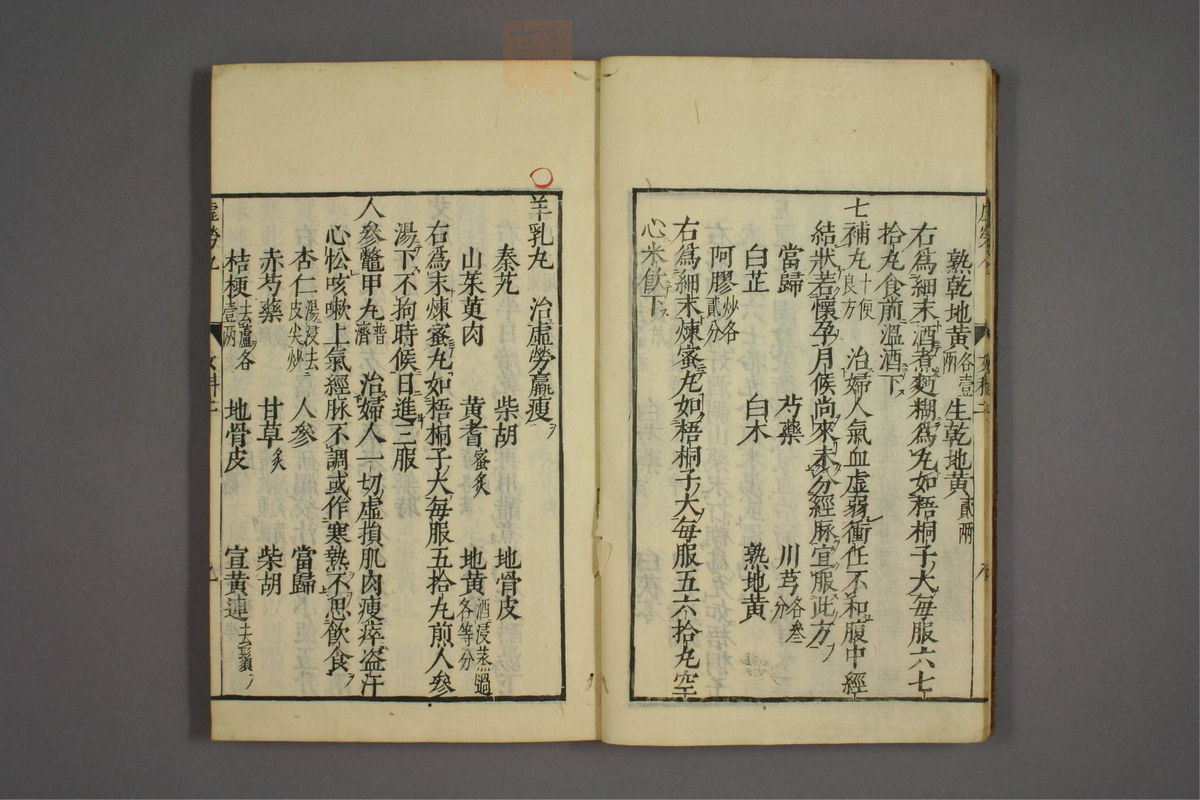 熟乾地黃各壹兩 生乾地黃貳兩
右爲細末酒煮麪糊爲丸如梧桐子大毎服六七
拾丸食前溫酒下
七補丸十便良方 治婦人氣血虛弱衝任不和腹中經
結狀若懷孕月候尚來未分經脉宜服此方
當歸 芍藥 川芎各叁分
白芷 白木 熟地黃
阿膠炒各貳分
右爲細末煉蜜丸如梧桐子大毎服五六拾丸空
心米飮下
羊乳丸 治虛勞羸瘦
秦艽 柴胡 地骨皮
山茱萸肉 黃耆蜜炙 地黃酒浸蒸過各等分
右爲末煉蜜丸如梧桐子大毎服五拾丸煎人參
湯下不狗時候日進三服
人參鼈甲丸普濟 治婦人一切虛損肌肉瘦瘁盗汗
心忪咳嗽上氣經脉不調或作寒熱不思飮食
杏仁湯浸去皮尖炒 人參 當歸
赤芍藥 甘草炙 柴胡
桔梗去蘆各壹兩 地骨皮 宣黃連去鬚
虛勞九